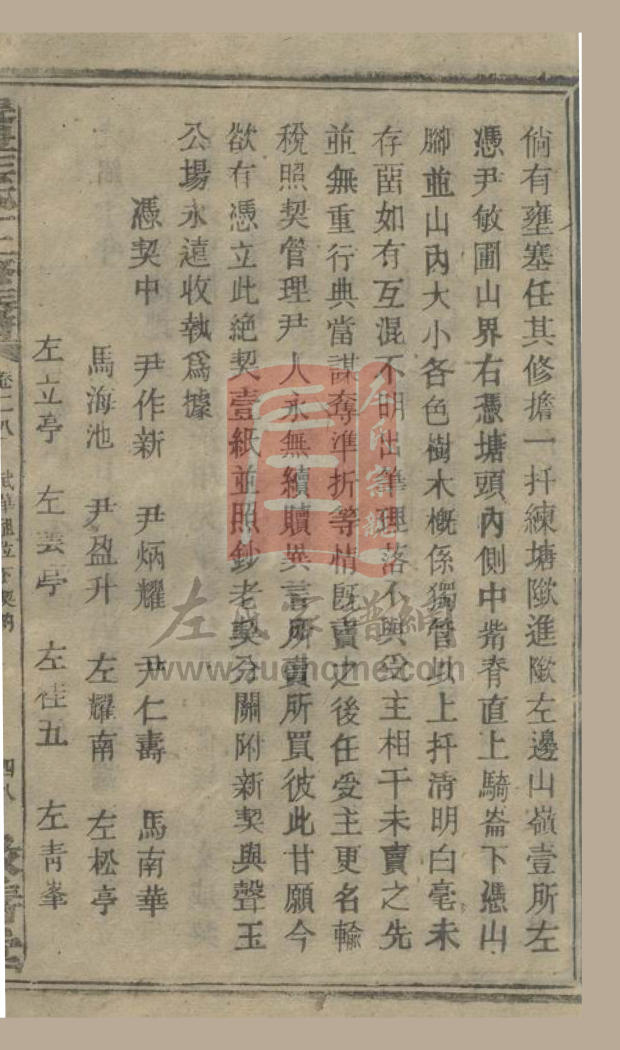 倘有壅塞任其修擔一扞練塘墘進墘左邊山嶺壹所左
憑尹敏圃山界右憑塘頭內側中觜脊直上騎崙下憑山
腳並山內大小各色樹木槪係獨管以上扞清明白毫未
存畱如有互混不明出筆理落不與受主相干未賣之先
並無重行典當謀奪準折等情旣賣之後任受主更名輸
稅照契管理尹人永無續贖異言所賣所買彼此甘願今
欲有憑立此絕契壹紙並照鈔老契分關附新契與聲玉
公場永遠收執爲據
憑契中 尹作新 尹炳耀 尹仁壽 馬南華
馬海池 尹盈升 左耀南 左松亭
左立亭 左雲亭 左佳五 左青峯
卷二八
四八
敦睦堂
左氏家譜網
www.zuohome.com